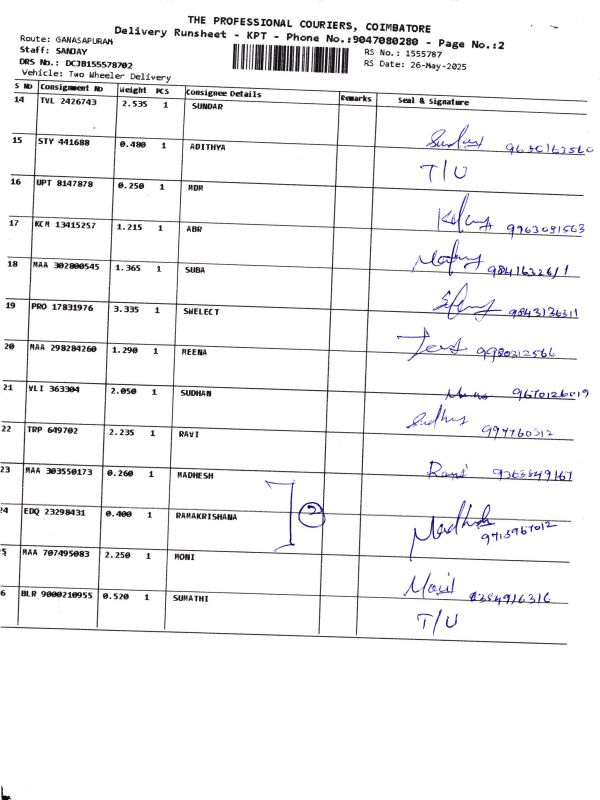 THE PROFESSIONAL COURIERS, COIMBATORE
Delivery Runsheet - KPT - Phone No.:9047080280 - Page No.:2
Route: GANASAPURAM
Staff: SANJAY
DRS No.: DCJB155578702
Vehicle: Two Wheeler Delivery
RS No.: 1555787
RS Date: 26-May-2025
S No Consignment No Weight PCS Consignee Details Remarks Seal & Signature
14 TVL 2426743 2.535 1 SUNDAR
15 STY 441688 0.480 1 ADITHYA T/U
16 UPT 8147878 0.250 1 MDM
17 KCM 13415257 1.215 1 ABR 9963081563
18 MAA 302800545 1.365 1 SUBA
19 PRO 17831976 3.335 1 SWELECT
20 MAA 298284260 1.290 1 MEENA 9980312566
21 VLI 363304 2.050 1 SUDHAN 9670126019
Sudhus 997760312
22 TRP 649702 2.235 1 RAVI
23 MAA 303550173 0.260 1 MADHESH Ravi 9363849167
24 EDQ 23298431 0.400 1 RAMAKRISHANA 9715967012
5 MAA 707495083 2.250 1 MONI
6 BLR 9000210955 0.520 1 SUMATHI
T/U